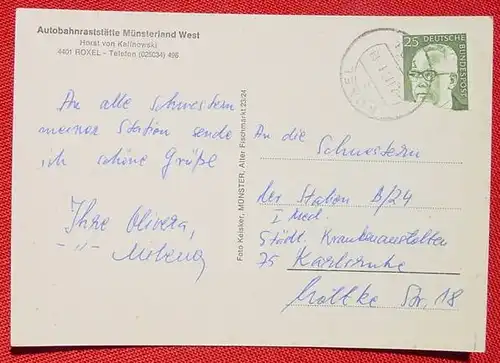 Autobahnraststätte Münsterland West
Horst von Kalinowski
4401 ROXEL - Telefon (025034) 496
25
DEUTSCHE
BUNDESPOST
ROXEL
An alle Schwestern
meiner Station sende
ich schöne Grüße
Ihre Olivera,
-"- Milena
Foto Keisker, MÜNSTER, Alter Fischmarkt 23/24
An die Schwestern
der Station B/24
I Med.
Städt. Krankenanstalten
75 Karlsruhe
Moltke Str. 18